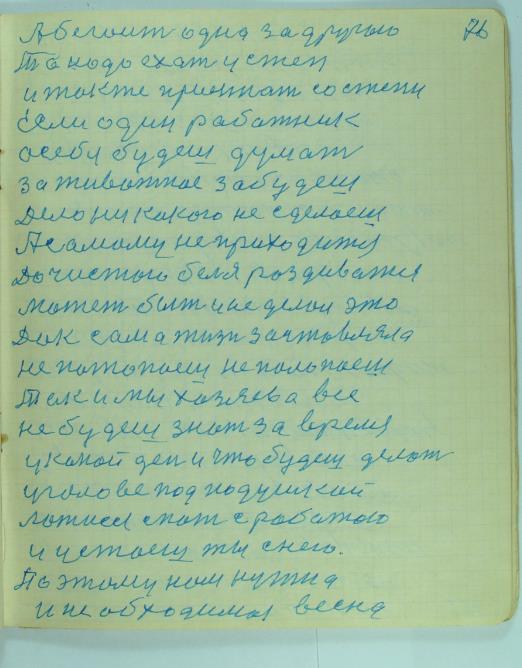 76
А бегоит одна за другою
То нодо ехат у степ
и токже приежат состепи
Если один работник
осебя будеш думат
за животное забудеш
Дело никокого не сделоеш
А самому не приходится
До чистого беля роздиватся
может быт и не делол это
Док сама жизн зоставляла
не потопоеш не полопоеш
Так и мы хозяева все
не будеш знат за время
у кокой ден и что будеш делот
у голове под подушкой
ложися спат с работою
и устоеш ты с него.
Поэтому ном нужна
и необходимоя весна